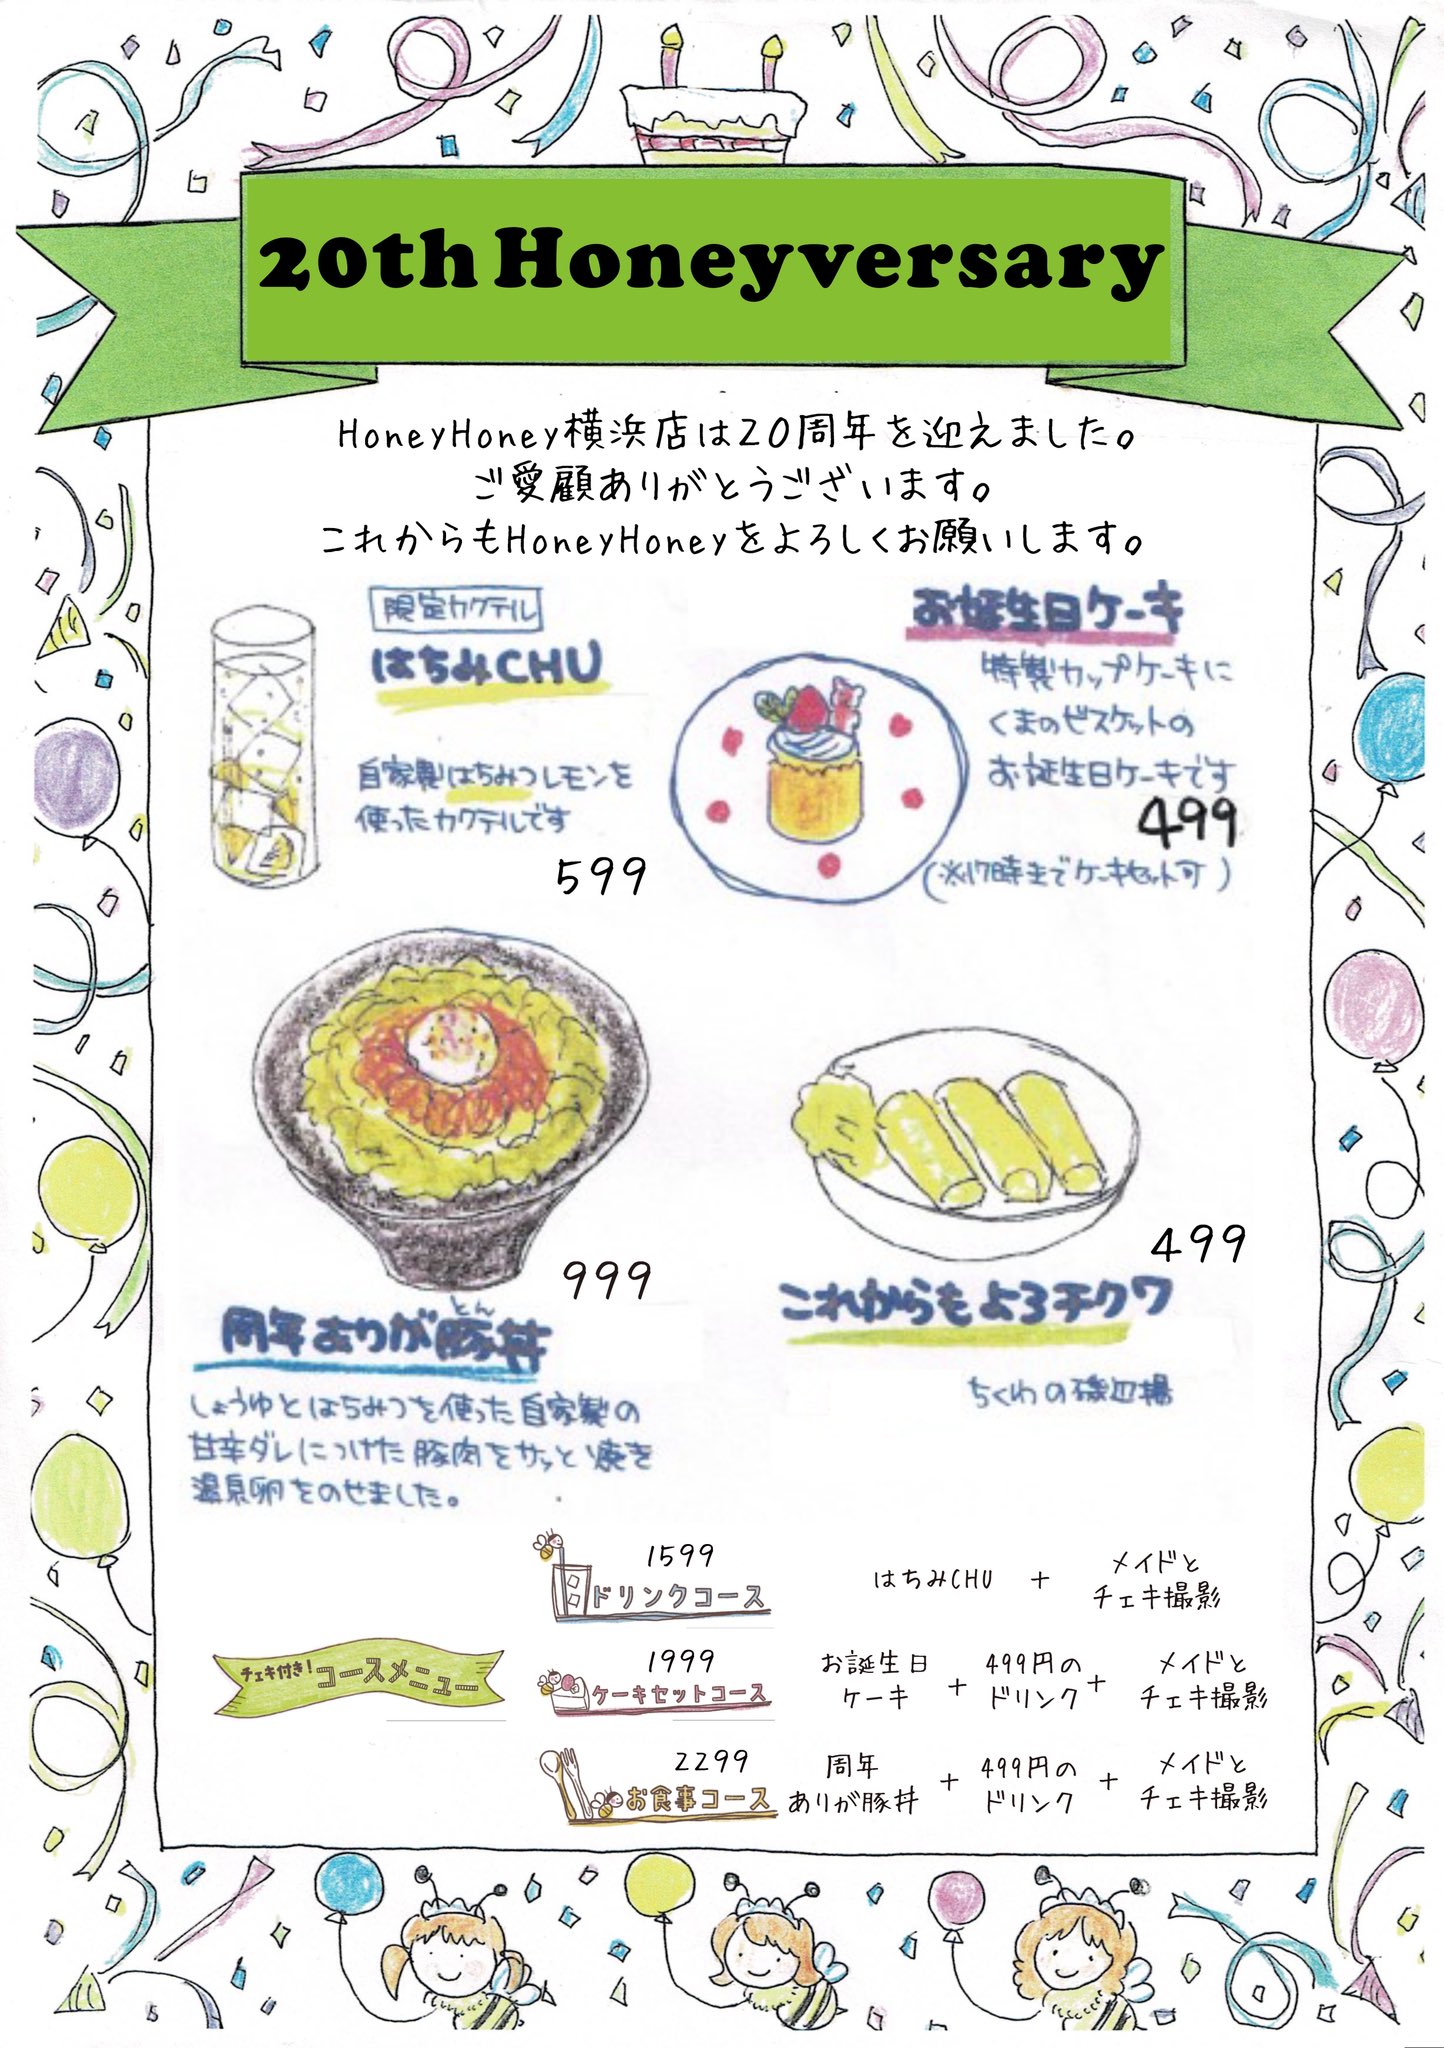 20th Honeyversary
HoneyHoney横浜店は20周年を迎えました。
ご愛顧ありがとうございます。
これからもHoneyHoneyをよろしくお願いします。
限定カクテル
はちみCHU
自家製はちみつレモンを
使ったカクテルです
599
お誕生日ケーキ
特製カップケーキに
くまのビスケットの
お誕生日ケーキです
499
(※17時までケーキセット可)
999
周年ありが豚丼
とん
しょうゆとはちみつを使った自家製の
甘辛ダレにつけた豚肉をサッと焼き
温泉卵をのせました。
499
これからもよろチクワ
ちくわの磯辺揚
チェキ付き!コースメニュー
1599
ドリンクコース
はちみCHU + メイドと
チェキ撮影
1999
ケーキセットコース
お誕生日
ケーキ + 499円の
ドリンク + メイドと
チェキ撮影
2299
お食事コース
周年
ありが豚丼 + 499円の
ドリンク + メイドと
チェキ撮影